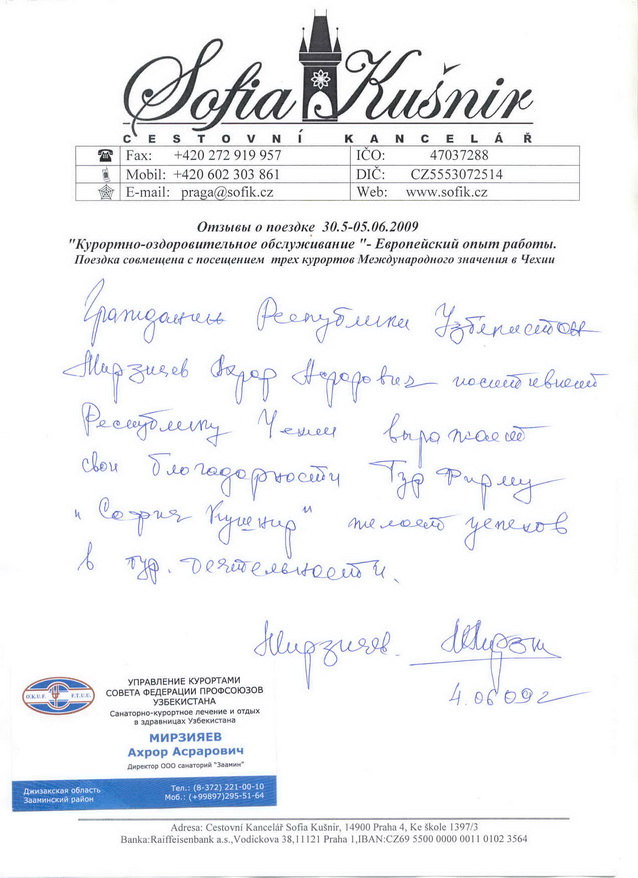 Sofia Kušnir
CESTOVNÍ KANCELÁŘ
Fax: +420 272 919 957 IČO: 47037288
Mobil: +420 602 303 861 DIČ: CZ5553072514
E-mail: praga@sofik.cz Web: www.sofik.cz
Отзывы о поездке 30.5-05.06.2009
"Курортно-оздоровительное обслуживание "- Европейский опыт работы.
Поездка совмещена с посещением трех курортов Международного значения в Чехии
Гражданин Республики Узбекистон
Мирзияев Ахрор Асрорович
Республику Чехии выражает
свои благодарности Тур Фирму
"София Кушнир" желает успехов
в тур. деятельности.
Мирзияев.
4.06.09г
О.К.U.F. F.T.U.U.
УПРАВЛЕНИЕ КУРОРТАМИ
СОВЕТА ФЕДЕРАЦИИ ПРОФСОЮЗОВ
УЗБЕКИСТАНА
Санаторно-курортное лечение и отдых
в здравницах Узбекистана
МИРЗИЯЕВ
Ахрор Асрарович
Директор ООО санаторий "Заамин"
Джизакская область
Зааминский район
Тел.: (8-372) 221-00-10
Моб.: (+99897)295-51-64
Adresa: Cestovní Kancelář Sofia Kušnir, 14900 Praha 4, Ke škole 1397/3
Banka:Raiffeisenbank a.s.,Vodickova 38,11121 Praha 1,IBAN:CZ69 5500 0000 0011 0102 3564